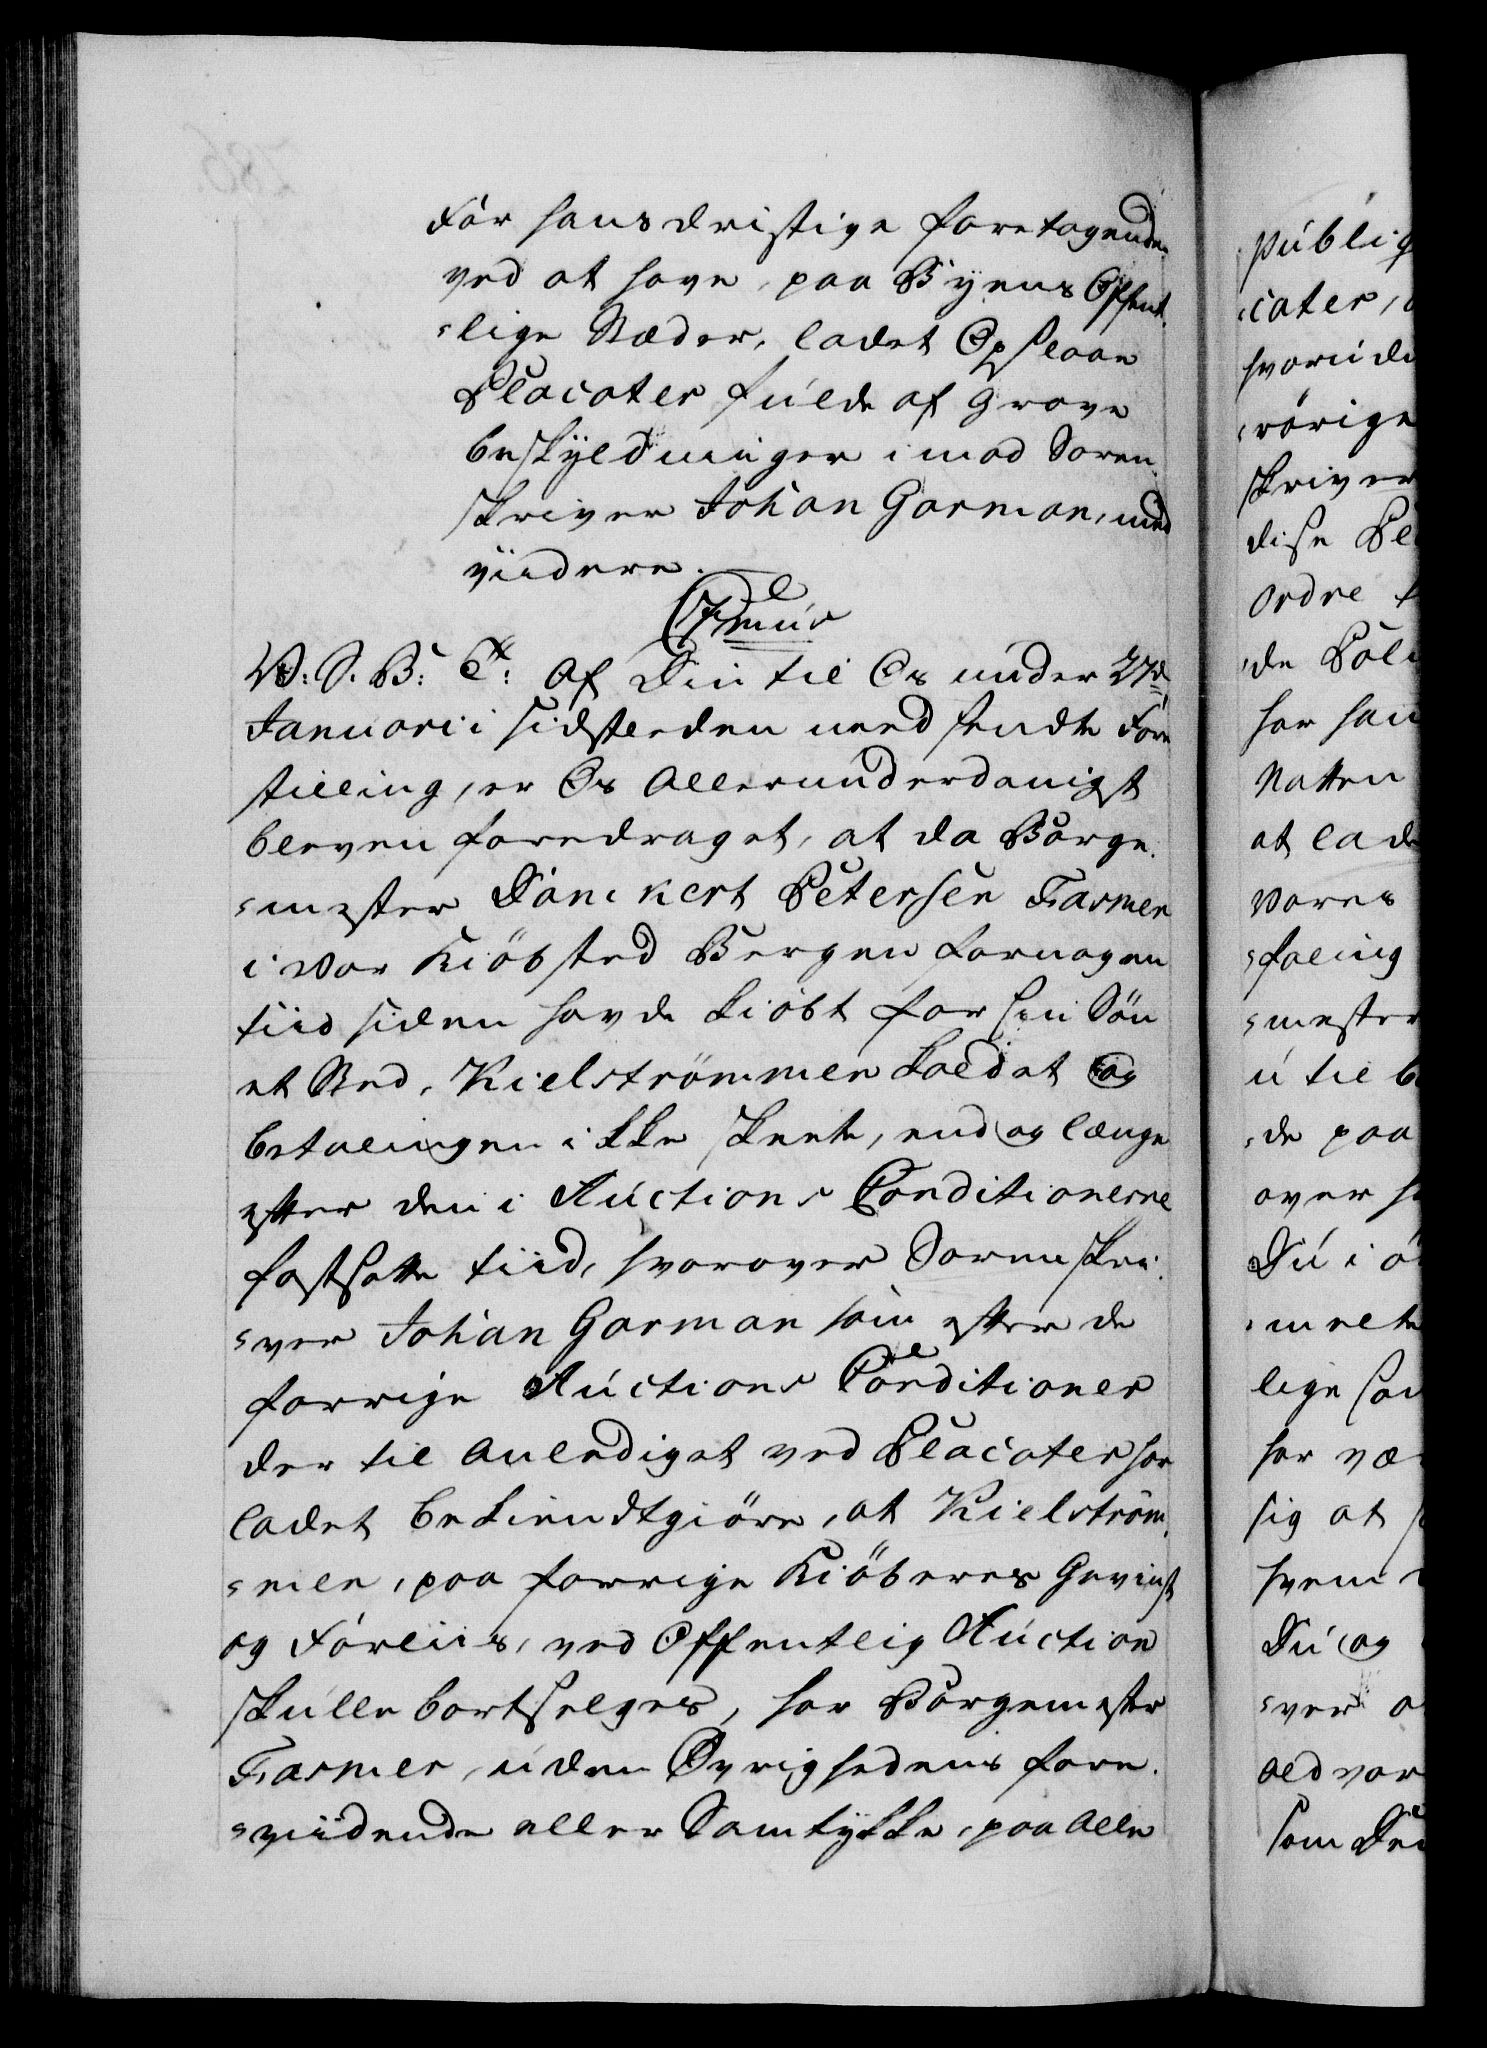 For hans dristige foretagende
ved at have, paa Byens Offent-
-lige Stæder, ladet Opslaae
Placater fulde af grove
beskyldninger imod Soren-
skriver Johan Garman, med
viidere.
C 7mus
V: S: B: Ct: Af Din til Os under 27de
Januarii sidstleden need sendte Fore
stilling, er Os allerunderdanigst
bleven foredraget, at da Borge-
-mester Danckert Petersen Fasmer
i Vor Kiöbsted Bergen for nogen
tiid siden havde kiöbt for sin Sön
et Sted, Kielströmmen kaldet og
betalingen ikke skeete, end og længe
efter den i Auctions Conditionerne
fastsatte tiid, hvorover Sorenskri-
-ver Johan Garman som efter de
forrige Auctions Conditioner
der til anlediget ved Placater har
ladet bekiendtgiöre, at Kielström-
-men, paa forrige Kiöberes Gevinst
og Forliis, ved Offentlig Auction
skulle bortselges, har Borgemester
Fasmer, uden Øvrighedens fore-
-viidende eller Samtykke, paa alle
publiq
-cater, o
hvorudi
-rörige
skriver
disse Pl
Ordre
-de Poli
har han
Natten
at lade
Vores
-faling
-mester
u til b
-de paa
over h
Du i ö
-melte
lige saa
har væ
sig at
hvem
Du og
-ver o
alvor
som De